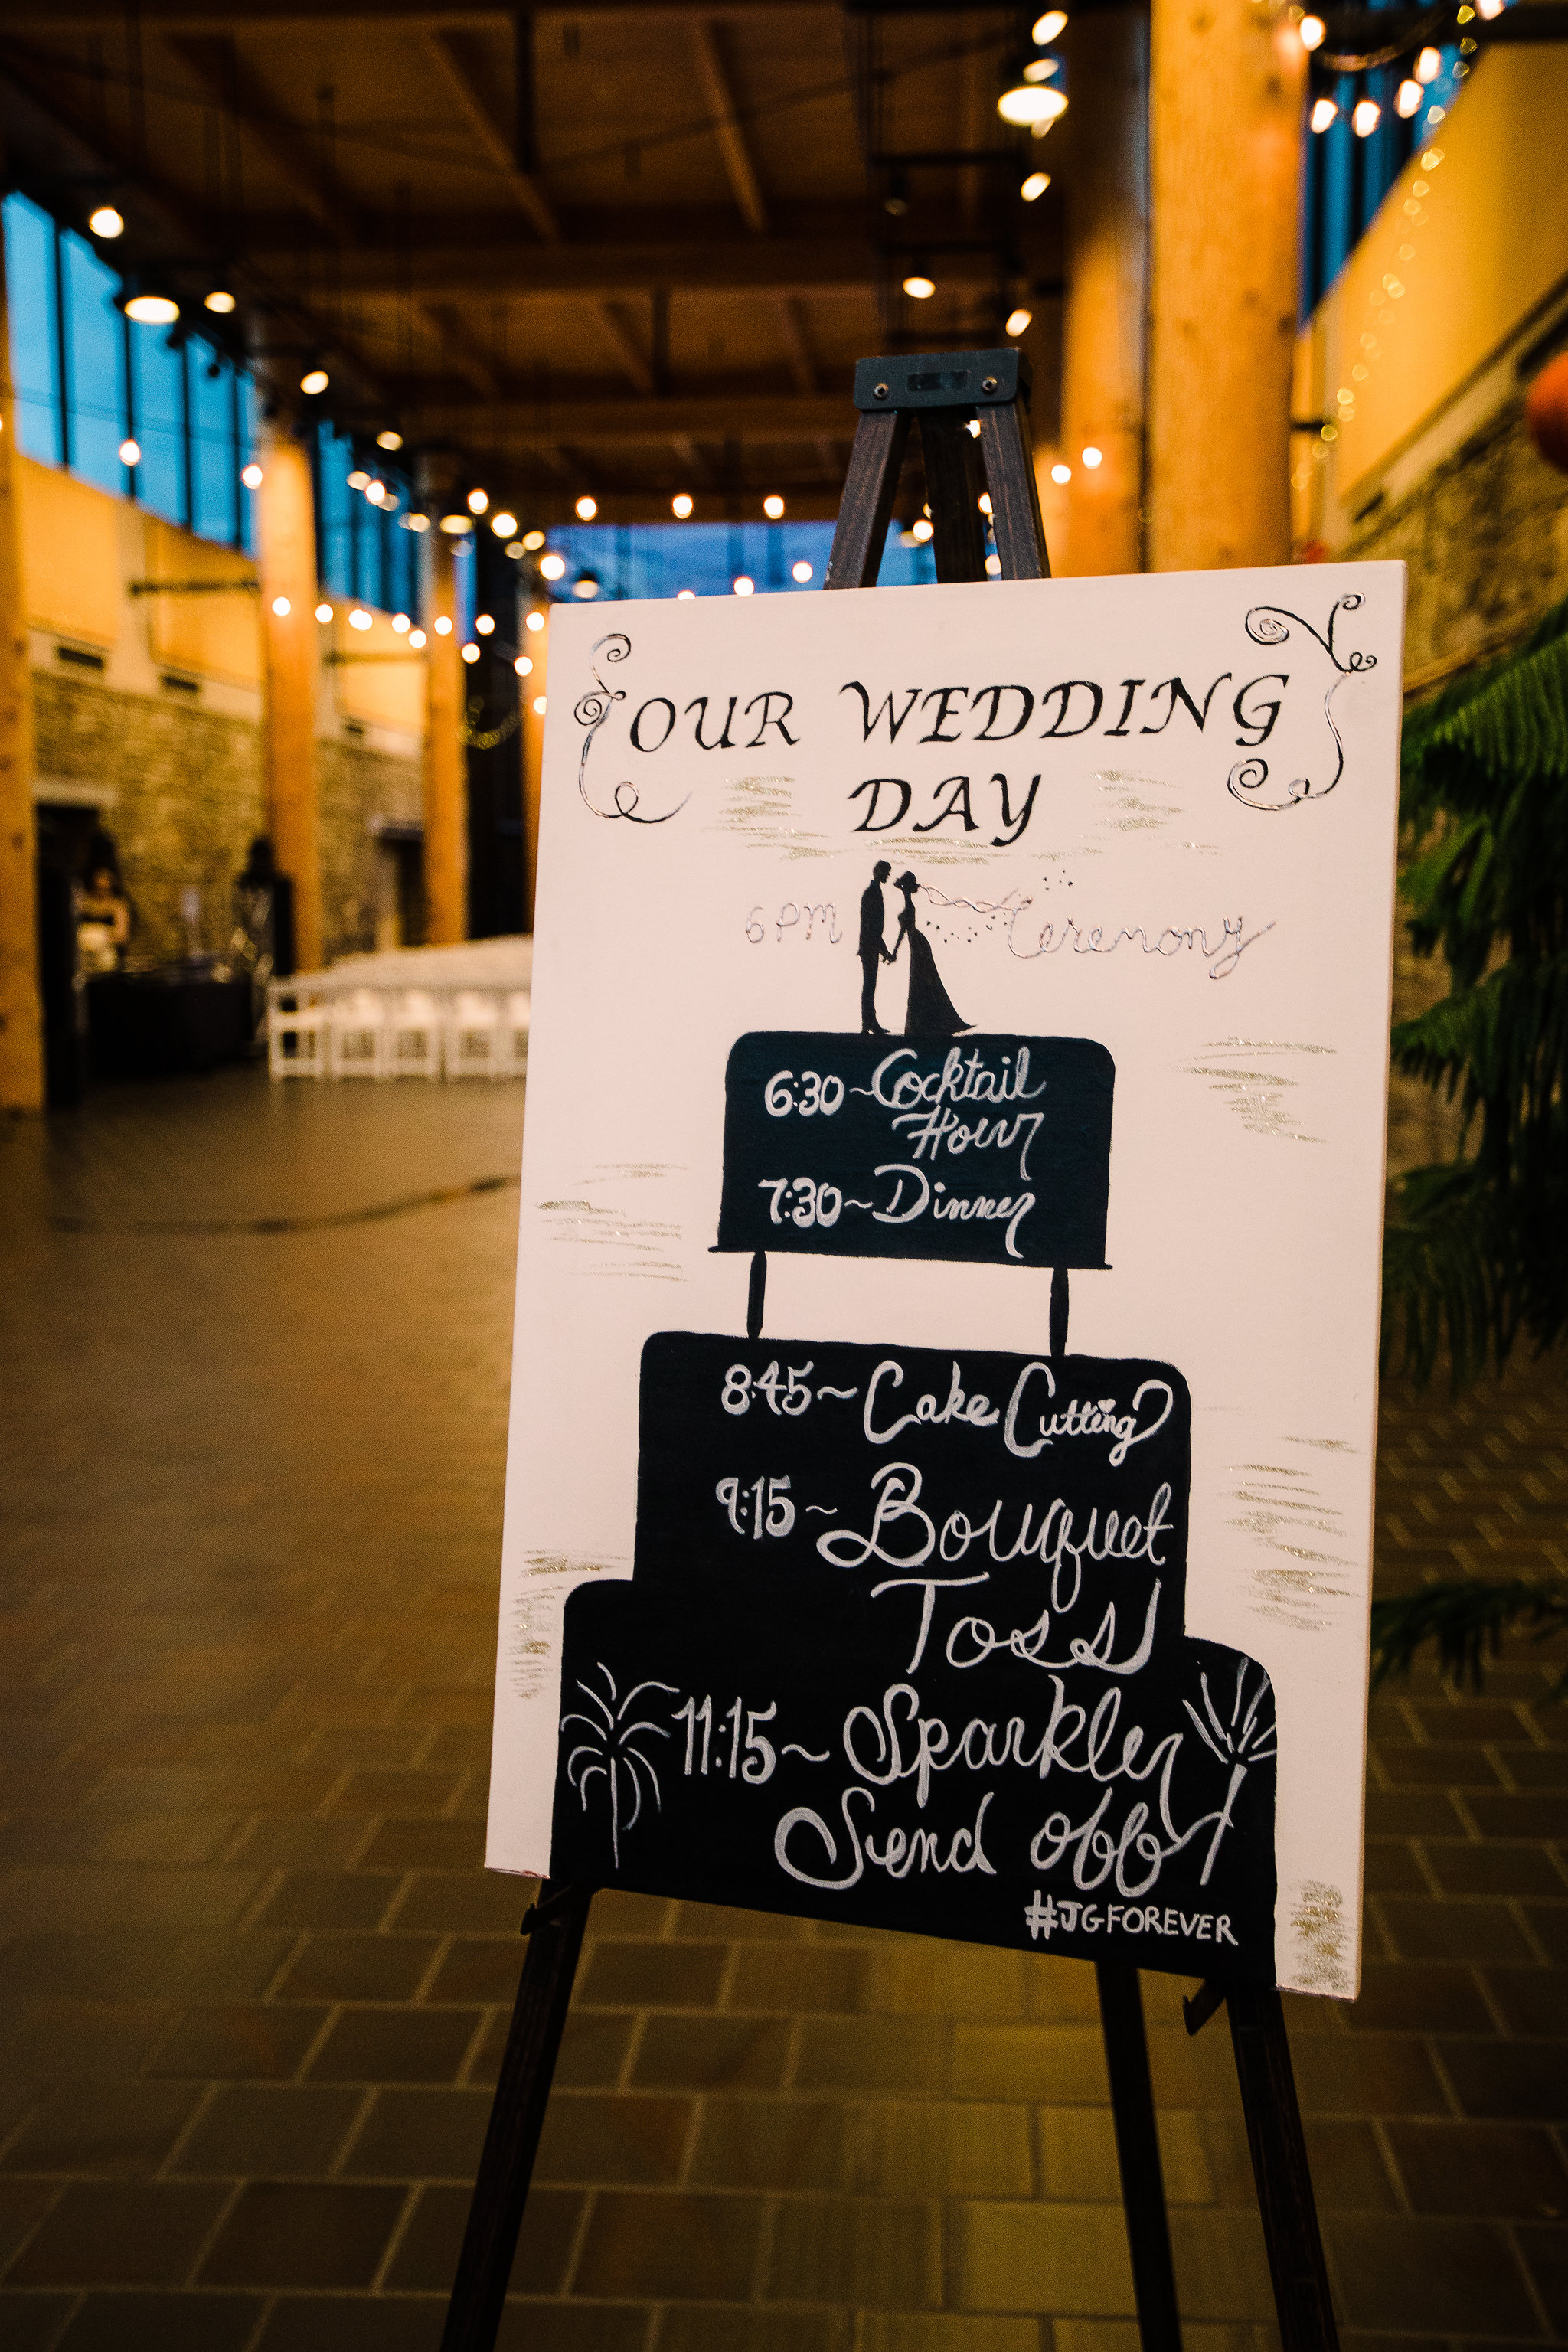 OUR WEDDING
DAY
6PM Ceremony
6:30~Cocktail
Hour
7:30~Dinner
8:45~Cake Cutting
9:15~Bouquet
Toss
11:15~Sparkler
Send off
#JGFOREVER